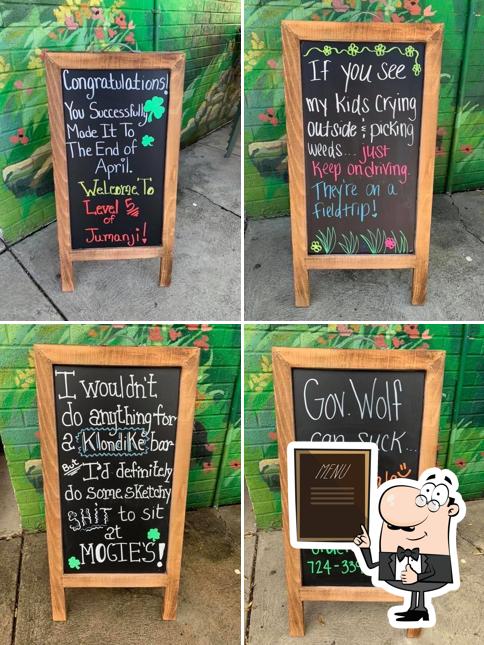 Congratulations!
You Successfully
Made It To
The End of
April.
Welcome To
Level 5
of
Jumanji!
If you see
my kids crying
outside & picking
weeds... just
keep on driving.
They're on a
fieldtrip!
I wouldn't
do anything for
a Klondike bar
But I'd definitely
do some sketchy
SHIT to sit
at
MOGIE'S!
Gov. Wolf
can suck...
MENU
724-339